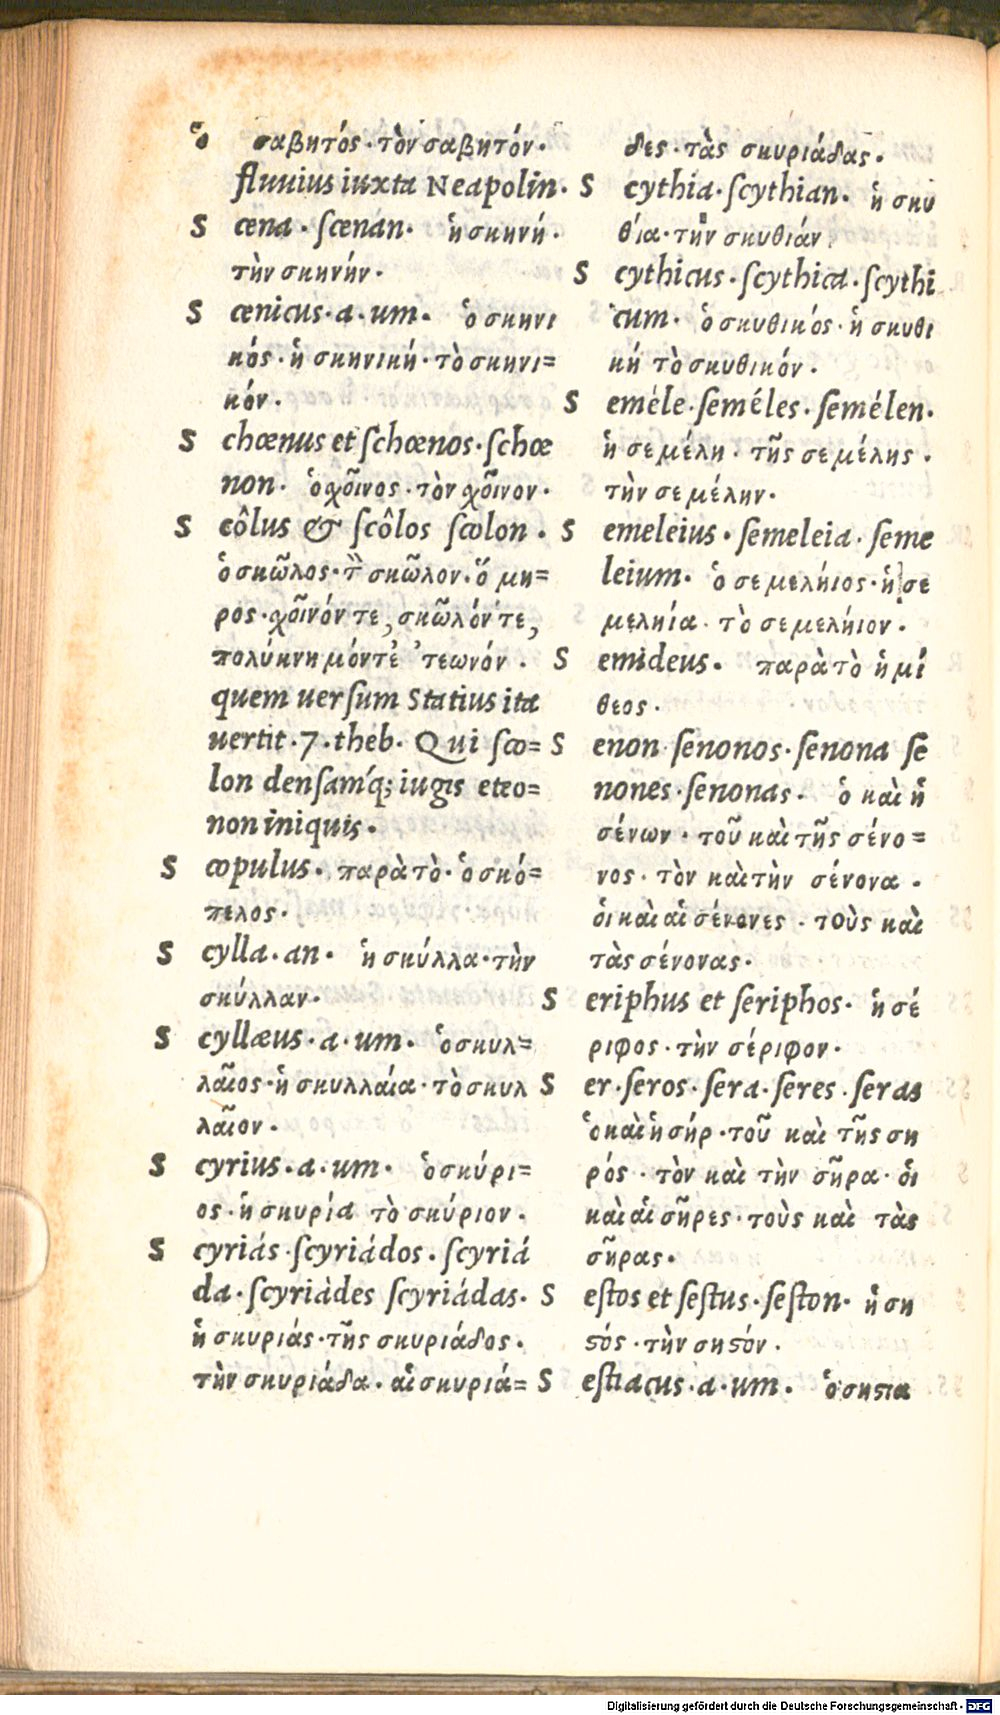 ὁ σαβητός · τὸν σαβητόν ·
fluuius iuxta Neapolin ·
S cena · ſcenan · ἡ σκηνή ·
τὴν σκηνήν ·
S cenicus · a · um · ὁ σκηνι
κός · ἡ σκηνική · τὸ σκηνι=
κόν ·
S chœnus et ſchœnos · ſchœ
non · ὁ χοῖνος · τὸν χοῖνον ·
S côlus & ſcôlos ſcolon ·
ὁ σκῶλος · τ̀ σκῶλον · ὅ μη=
ρος · χοῖνόν τε, σκῶλόν τε,
πολύκνημόν τ' ἐτεωνόν ·
quem uerſum Statius ita
uertit · 7 · theb · Qui ſco=
lon denſamq́; iugis eteo=
non iniquis ·
S copulus · παρὰ τὸ · ὁ σκό=
πελος ·
S cylla · an · ἡ σκύλλα · τὴν
σκύλλαν ·
S cyllæus · a · um · ὁ σκυλ=
λαῖος · ἡ σκυλλαία · τὸ σκυλ
λαῖον ·
S cyrius · a · um · ὁ σκύρι=
ος · ἡ σκυρία τὸ σκύριον ·
S cyriás · ſcyriádos · ſcyriá
da · ſcyriàdes ſcyriádas ·
ἡ σκυριάς · τῆς σκυριάδος ·
τὴν σκυριάδα · αἱ σκυριά=
δες · τὰς σκυριάδας ·
S cythia · ſcythian · ἡ σκυ
θία · τὴν σκυθιάν
S cythicus · ſcythica · ſcythi
cum · ὁ σκυθικός · ἡ σκυθι
κή τὸ σκυθικόν ·
S eméle · ſeméles · ſemélen ·
ἡ σεμέλη · τῆς σεμέλης ·
τὴν σεμέλην ·
S emeleius · ſemeleia · ſeme
leium · ὁ σεμελήιος · ἡ σε
μεληία · τὸ σεμελήιον ·
S emideus · παρὰ τὸ ἡμί
θεος ·
S enon ſenonos · ſenona ſe
nones · ſenonas · ὁ καὶ ἡ
σένων · τοῦ καὶ τῆς σένο=
νος · τὸν καὶ τὴν σένονα ·
οἱ καὶ αἱ σένονες · τοὺς καὶ
τὰς σένονας ·
S eriphus et ſeriphos · ἡ σέ
ριφος · τὴν σέριφον ·
S er · ſeros · ſera · ſeres · ſeras
ὁ καὶ ἡ σήρ · τοῦ καὶ τῆς ση
ρός · τὸν καὶ τὴν σῆρα · οἱ
καὶ αἱ σῆρες · τοὺς καὶ τὰς
σῆρας ·
S eſtos et ſeſtus · ſeſton · ἡ ση
ϛός · τὴν σηϛόν ·
S eſtiacus · a · um · ὁ σηϛια
Digitalisierung gefördert durch die Deutsche Forschungsgemeinschaft - DFG